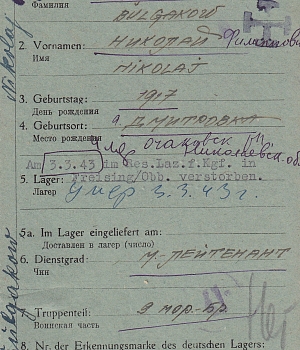 Фамилия BULGAKOW
2. Vornamen: НИКОЛАЙ Филиппович
Имя NIKOLAJ
3. Geburtstag: 1917
День рождения
4. Geburtsort: д. ДМИТРОВКА
Место рождения Очаковск
Николаевск. об
Am 3.3.43 im Res.Laz.f.Kgf. in
5. Lager: Freising/Obb. verstorben.
Лагер умер 3.3.43г.
5a. Im Lager eingeliefert am:
Доставлен в лагер (число)
6. Dienstgrad: М-ЛЕЙТЕНАНТ
Чин
7. Truppenteil: 9 мор. бр.
Воинская часть
8. Nr. der Erkennungsmarke des deutschen Lagers:
Nikolaj
Bulgakow